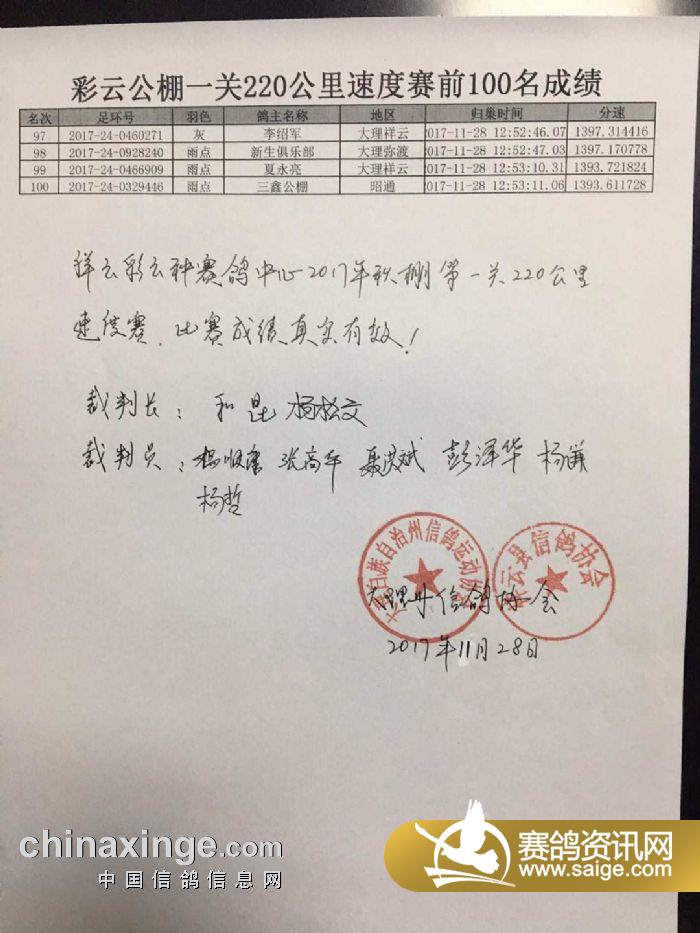 彩云公棚一关220公里速度赛前100名成绩
名次 足环号 羽色 鸽主名称 地区 归巢时间 分速
97 2017-24-0460271 灰 李绍军 大理祥云 2017-11-28 12:52:46.07 1397.314416
98 2017-24-0928240 雨点 新生俱乐部 大理弥渡 2017-11-28 12:52:47.03 1397.170778
99 2017-24-0466909 雨点 夏永亮 大理祥云 2017-11-28 12:53:10.31 1393.721824
100 2017-24-0329446 雨点 三鑫公棚 昭通 2017-11-28 12:53:11.06 1393.611728
祥云彩云种赛鸽中心2017年秋棚第一关220公里
速度赛,比赛成绩真实有效!
裁判长:和昆 杨松文
裁判员:杨顺 张高 聂洪斌 彭泽华 杨谦
杨哲
大理白族自治州信鸽运动协会
祥云县信鸽协会
大理州信鸽协会
2017年11月28日
chinaxinge.com
中国信鸽信息网
赛鸽资讯网
www.saige.com